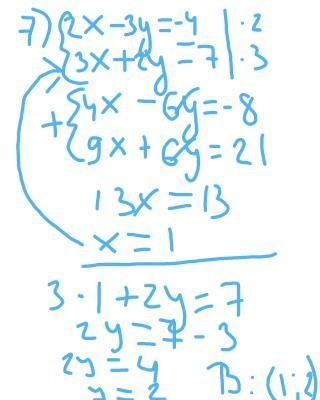 7) { 2x - 3y = -4 | · 2
3x + 2y = 7 | · 3
+ { 4x - 6y = -8
9x + 6y = 21
13x = 13
x = 1
3 · 1 + 2y = 7
2y = 7 - 3
2y = 4
y = 2 B: (1; 2)